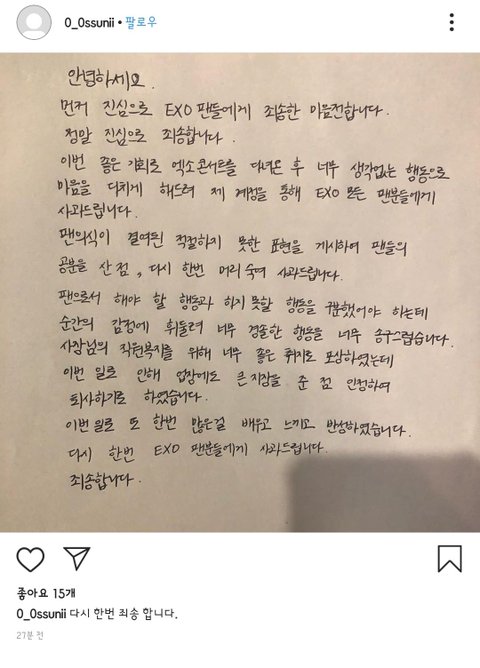 0_0ssunii • 팔로우
안녕하세요.
먼저 진심으로 EXO 팬들에게 죄송한 마음전합니다.
정말 진심으로 죄송합니다.
이번 좋은 기회로 엑소콘서트를 다녀온 후 너무 생각없는 행동으로
마음을 다치게 해드려 제 계정을 통해 EXO 모든 팬분들에게
사과드립니다.
팬의식이 결여된 적절하지 못한 표현을 게시하여 팬들의
공분을 산 점, 다시 한번 머리 숙여 사과드립니다.
팬으로서 해야 할 행동과 하지 못할 행동을 구분했어야 하는데
순간의 감정에 휘둘려 너무 경솔한 행동을 너무 송구스럽습니다.
사장님의 직원복지를 위해 너무 좋은 취지로 포상하였는데
이번 일로 인해 업장에도 큰 지장을 준 점 인정하여
퇴사하기로 하였습니다.
이번일로 또 한번 많은걸 배우고 느끼고 반성하였습니다.
다시 한번 EXO 팬분들에게 사과드립니다.
죄송합니다.
좋아요 15개
0_0ssunii 다시 한번 죄송 합니다.
27분 전